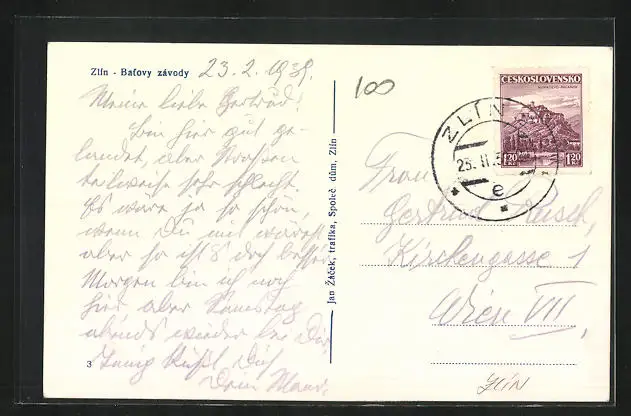 Zlín - Baťovy závody
23.2.1939.
Meine liebe Gertrud!
Bin hier gut ge-
landet, aber Strassen
teilweise sehr schlecht.
Es wäre ja so schön,
wenn Du mit wärest,
aber so ist's doch besser.
Morgen bin ich noch
hier, aber Samstag
abends wieder bei Dir.
Innig küßt Dich
Dein
3
Jan Žáček, trafika, Společ. dům, Zlín
100
ČESKOSLOVENSKO
1·20 1·20
ZLÍN
23. II. 3
e
Frau
Gertrud
Kirchengasse 1
Wien VII,
ZLÍN